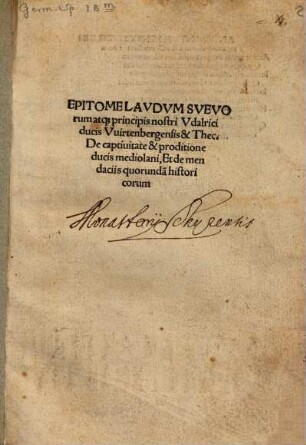 Germ. sp. 18 m
EPITOME LAVDVM SVEVO
rum atq; principis nostri Vdalrici
ducis Vuirtenbergensis & Thec.
De captiuitate & proditione
ducis mediolani, Et de men
daciis quorundã histori
corum
Monasterij Schyrensis